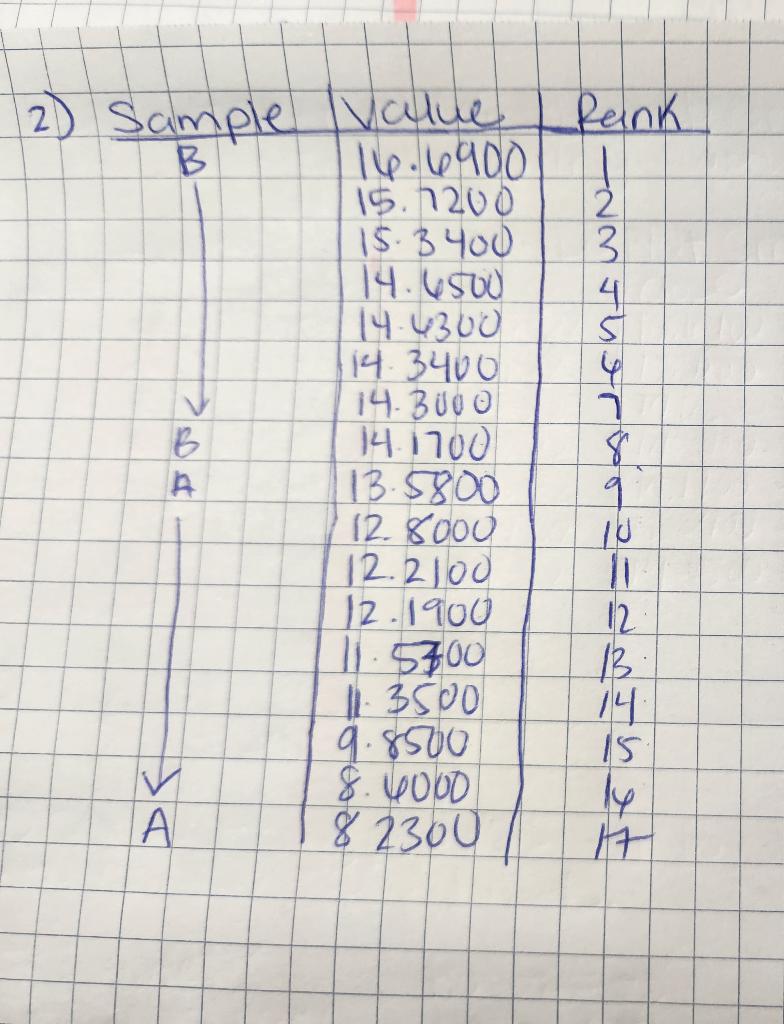 2) Sample Value Rank
B 16.6900 1
15.7200 2
15.3400 3
14.6500 4
14.6300 5
14.3400 6
14.3000 7
B 14.1700 8
A 13.5800 9
12.8000 10
12.2100 11
12.1900 12
11.5700 13
11.3500 14
9.8500 15
8.6000 16
A 8 2300 17